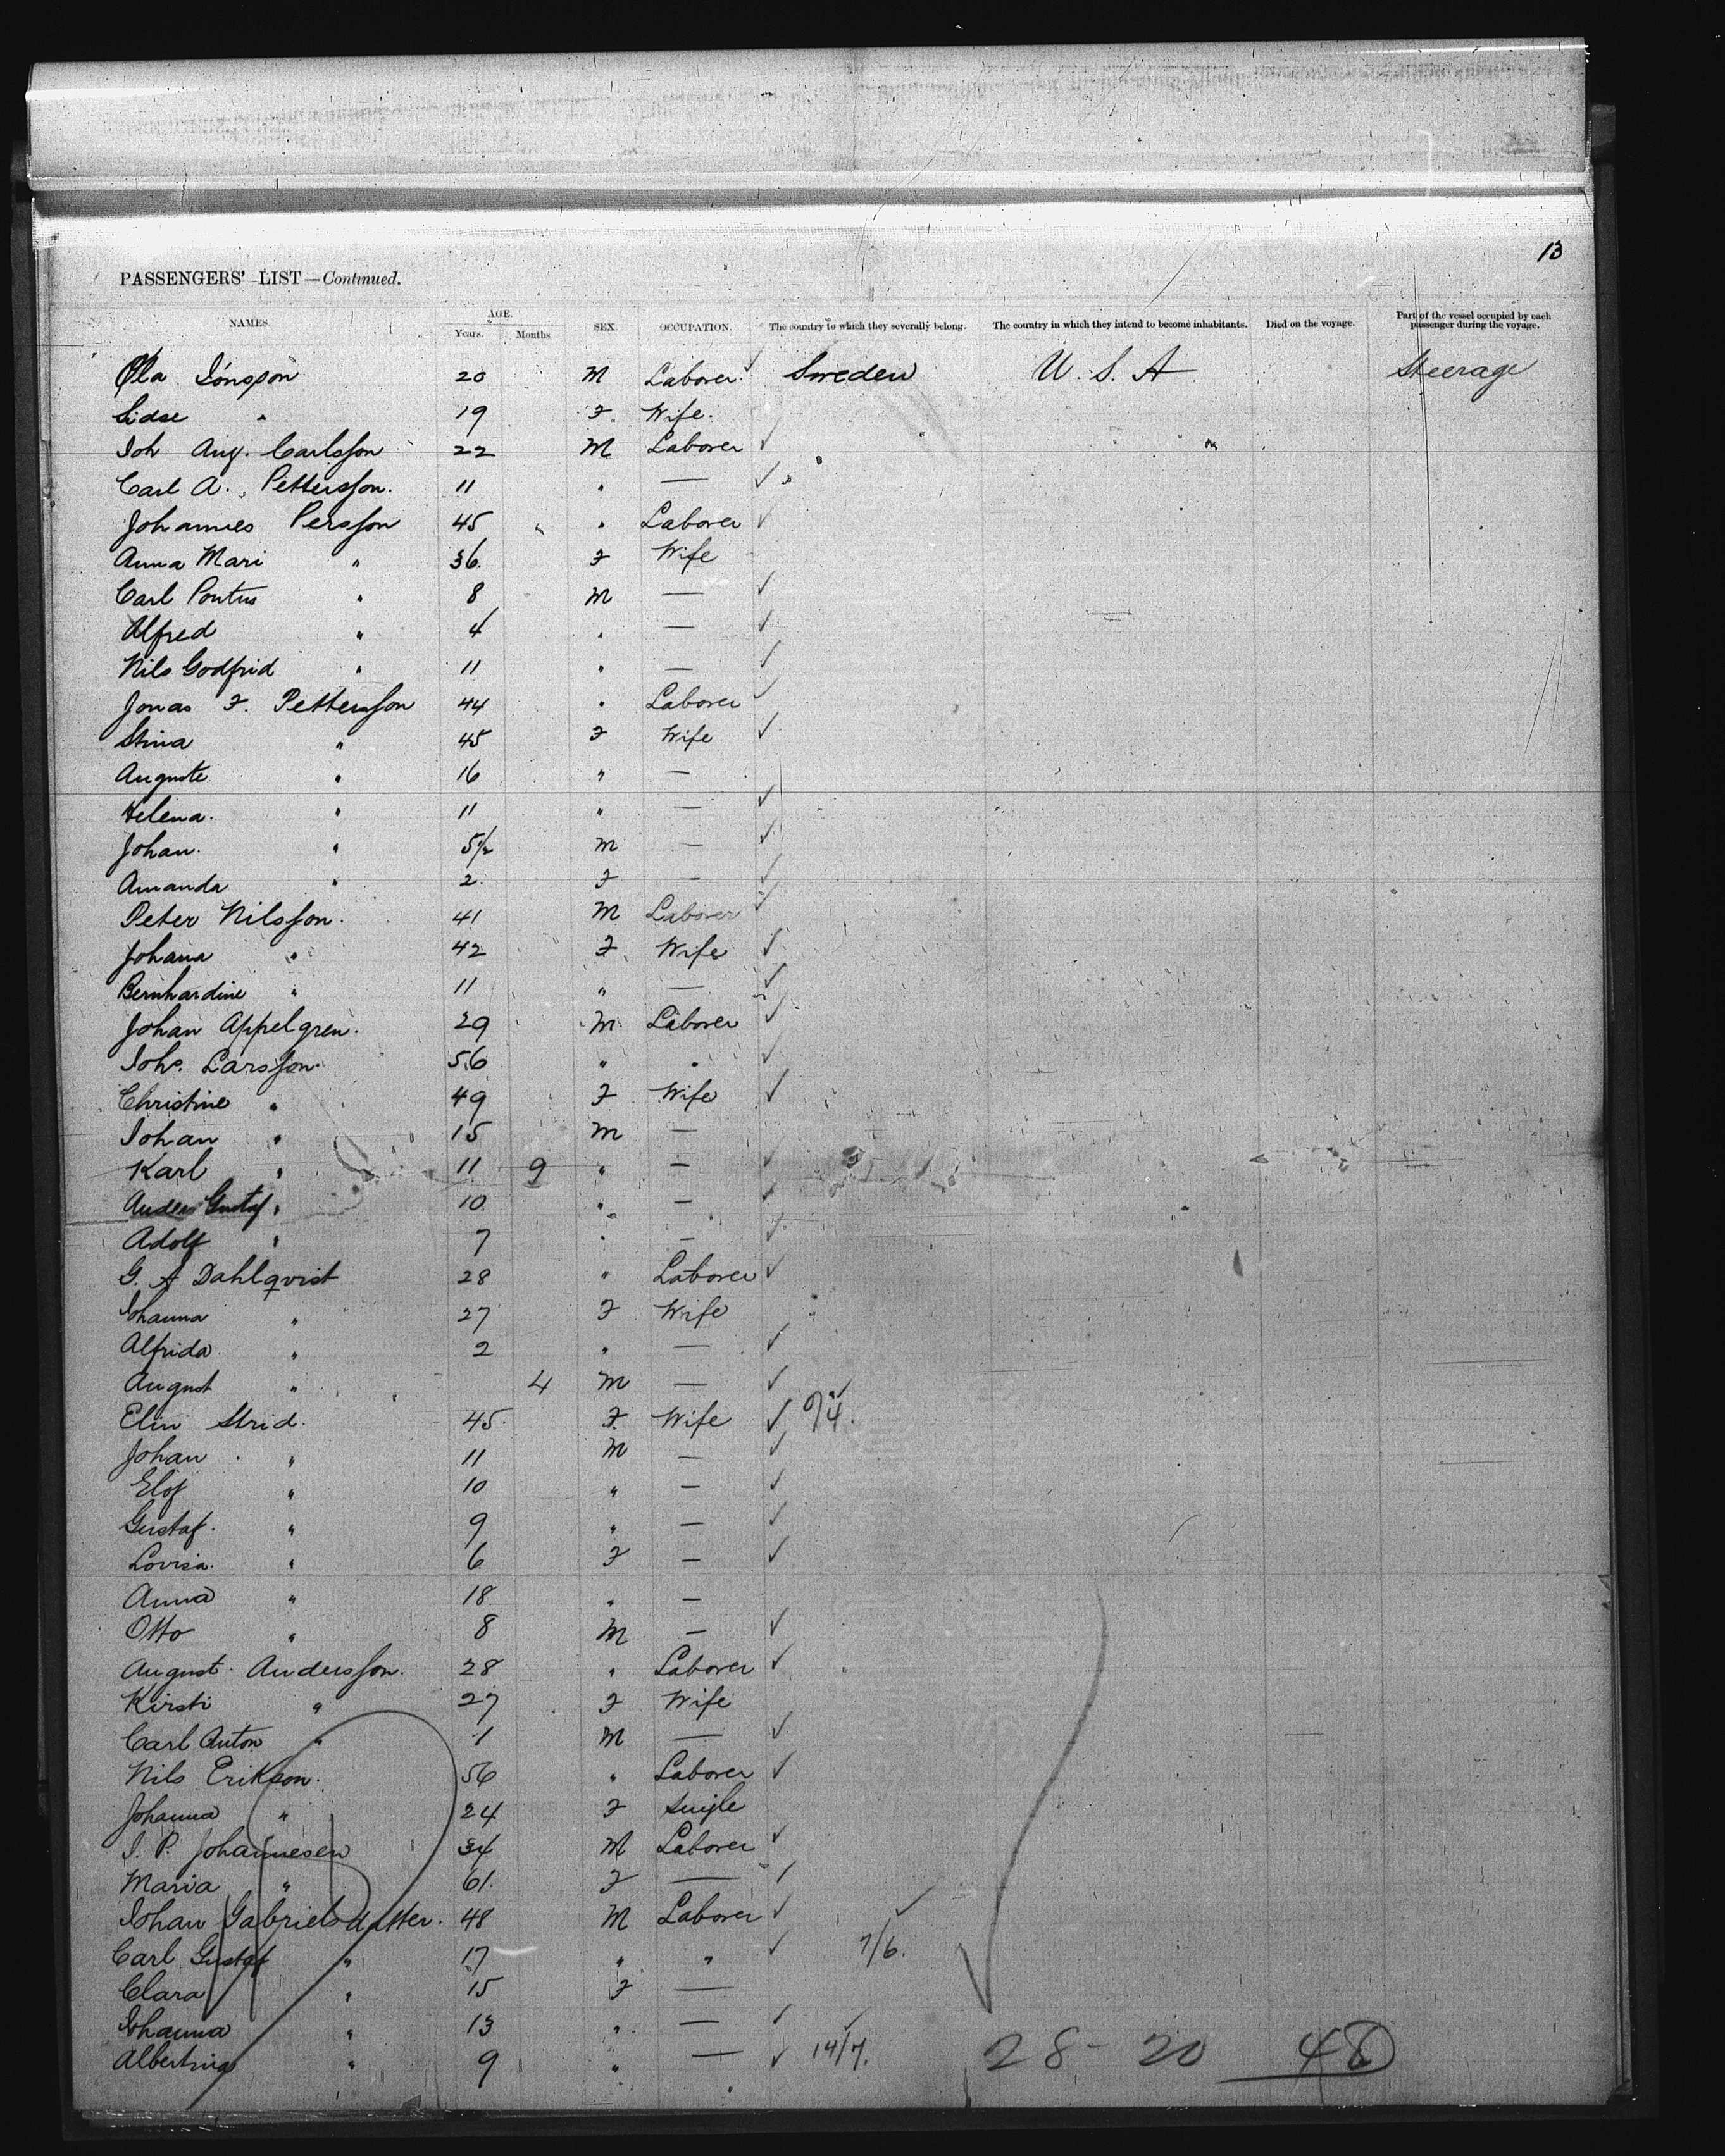 13
PASSENGERS' LIST—Continued.
NAMES. AGE. Years. Months SEX. OCCUPATION. The country to which they severally belong. The country in which they intend to become inhabitants. Died on the voyage. Part of the vessel occupied by each passenger during the voyage.
Ola Jönsson 20 M Laborer Sweden U. S. A Steerage
Sidse " 19 F Wife.
Joh Aug. Carlsson 22 M Laborer " "
Carl A. Pettersson. 11 " — "
Johannes Persson 45 " Laborer
Anna Mari " 36. F Wife
Carl Pontus " 8 M —
Alfred " 4 " —
Nils Godfrid " 11 " —
Jonas F. Pettersson 44 " Laborer
Stina " 45 F Wife
Auguste " 16 " —
Helena. " 11 " —
Johan. " 5½ M —
Amanda " 2. F —
Peter Nilsson. 41 M Laborer
Johana " 42 F Wife
Bernhardine " 11 " —
Johan Appelgren. 29 M Laborer
Johs. Larsson. 56 " "
Christine " 49 F Wife
Johan " 15 M —
Karl " 11 9 " —
Anders Gustaf " 10 " —
Adolf " 7 " —
G. A Dahlqvist 28 " Laborer
Johanna " 27 F Wife
Alfrida " 2 " —
August " 4 M —
Elin Strid. 45. F. Wife 9/4.
Johan " 11 M —
Elof " 10 " —
Gustaf. " 9 " —
Lovisa. " 6 F —
Anna " 18 " —
Otto " 8 M —
August. Andersson. 28 " Laborer
Kirsti " 27 F Wife
Carl Anton " 1 M —
Nils Erikson. 56 " Laborer
Johanna " 24 F Single
J. P. Johannesen 34 M Laborer
Maria " 61. F —
Johan Gabrielsdatter. 48 M Laborer
Carl Gustaf " 17 " " 7/6.
Clara " 15 F —
Johanna " 13 " —
Albertina " 9 " — 14/7. 28 - 20 48